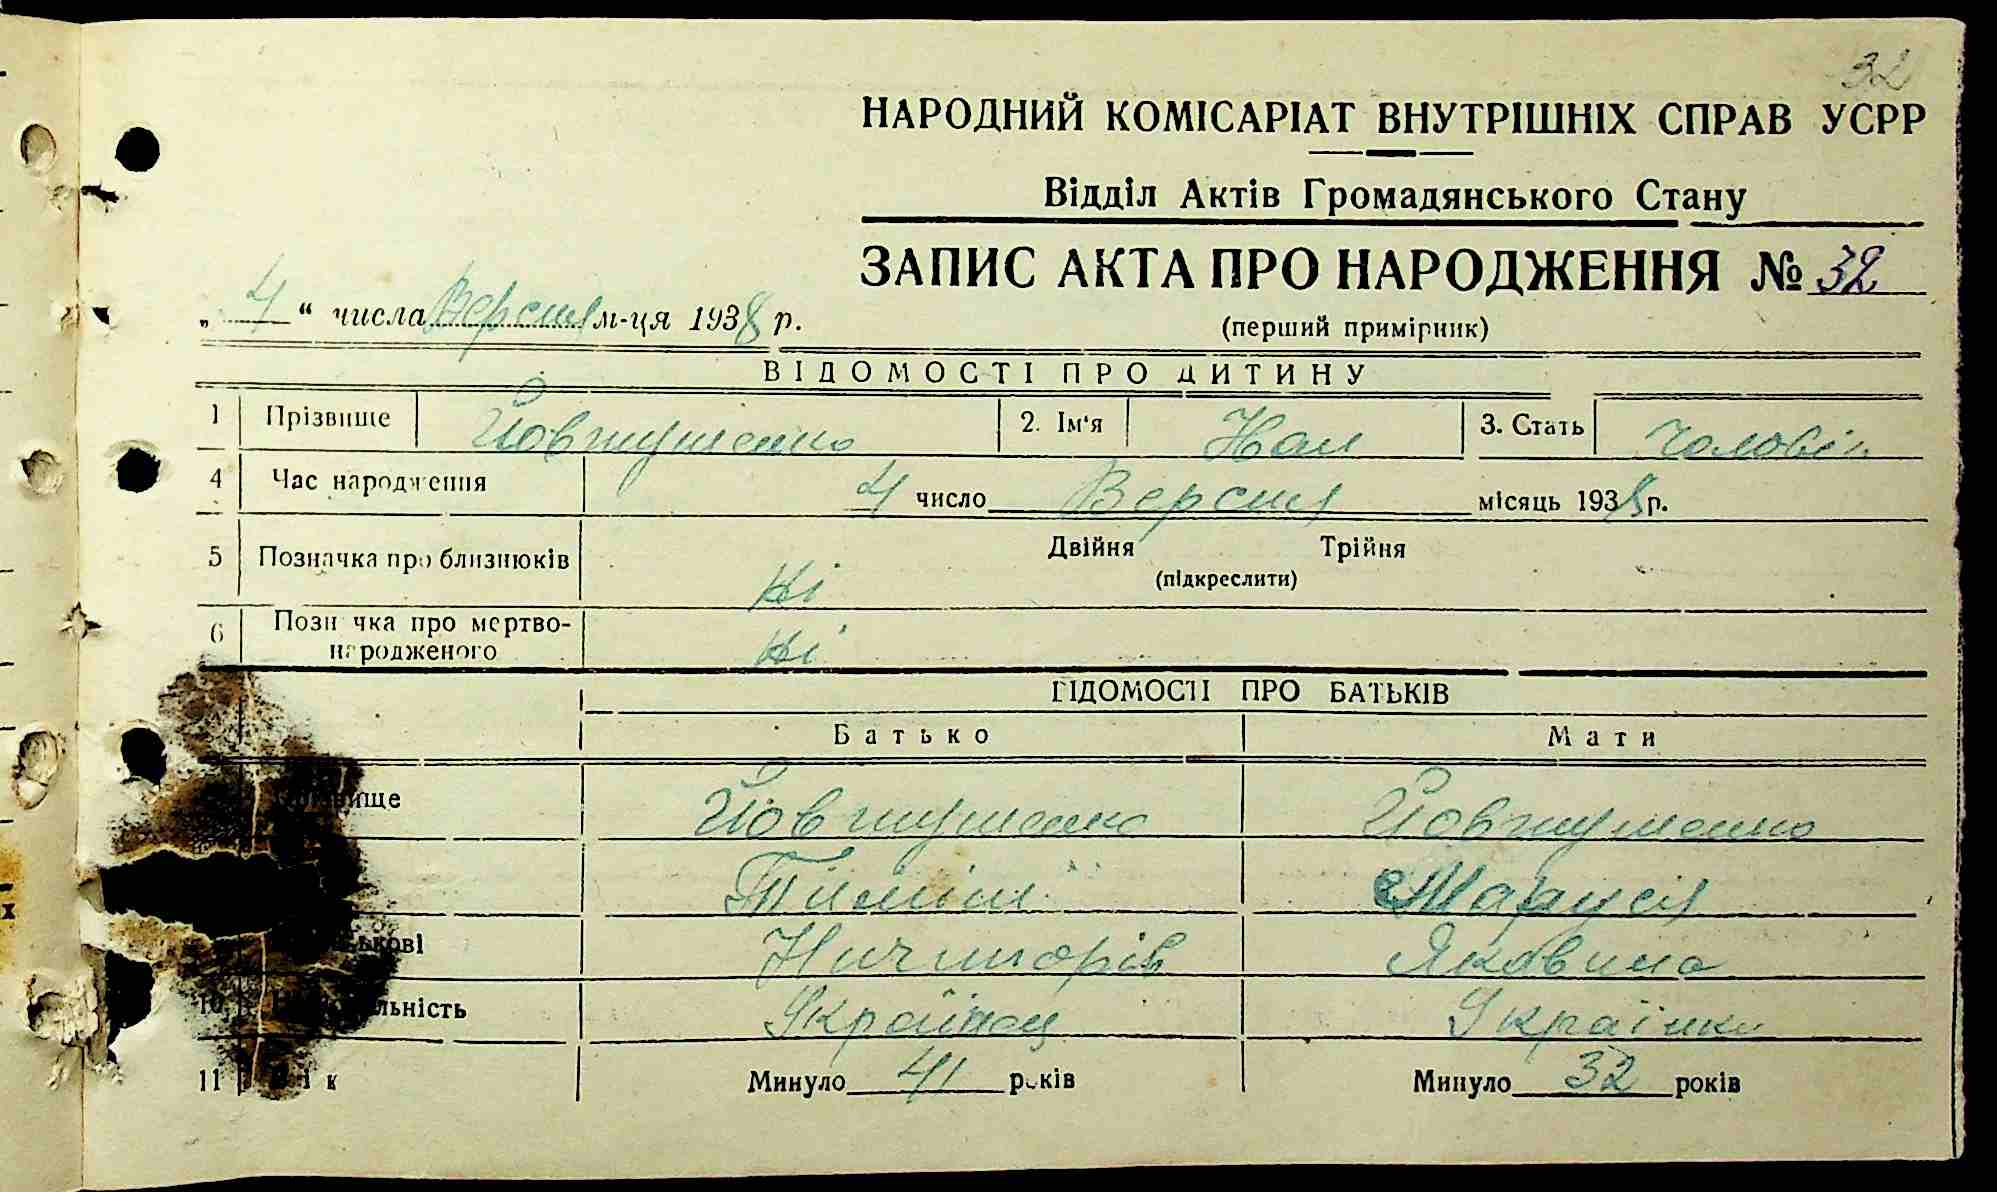 32
НАРОДНИЙ КОМІСАРІАТ ВНУТРІШНІХ СПРАВ УСРР
Відділ Актів Громадянського Стану
ЗАПИС АКТА ПРО НАРОДЖЕННЯ № 32
„4“ числа Версня м-ця 1938 р.
(перший примірник)
ВІДОМОСТІ ПРО ДИТИНУ
1 Прізвище Йовтушенко 2. Ім'я 3. Стать Чоловік
4 Час народження 4 число Версня місяць 1938 р.
5 Позначка про близнюків Ні Двійня Трійня
(підкреслити)
6 Позн чка про мертво-
народженого Ні
ВІДОМОСТІ ПРО БАТЬКІВ
Батько Мати
ище Йовтушенко Йовтушенко
Маруся
ькові Ничипорів Яковина
10 льність Українец Українка
11 Вік Минуло 41 років Минуло 32 років